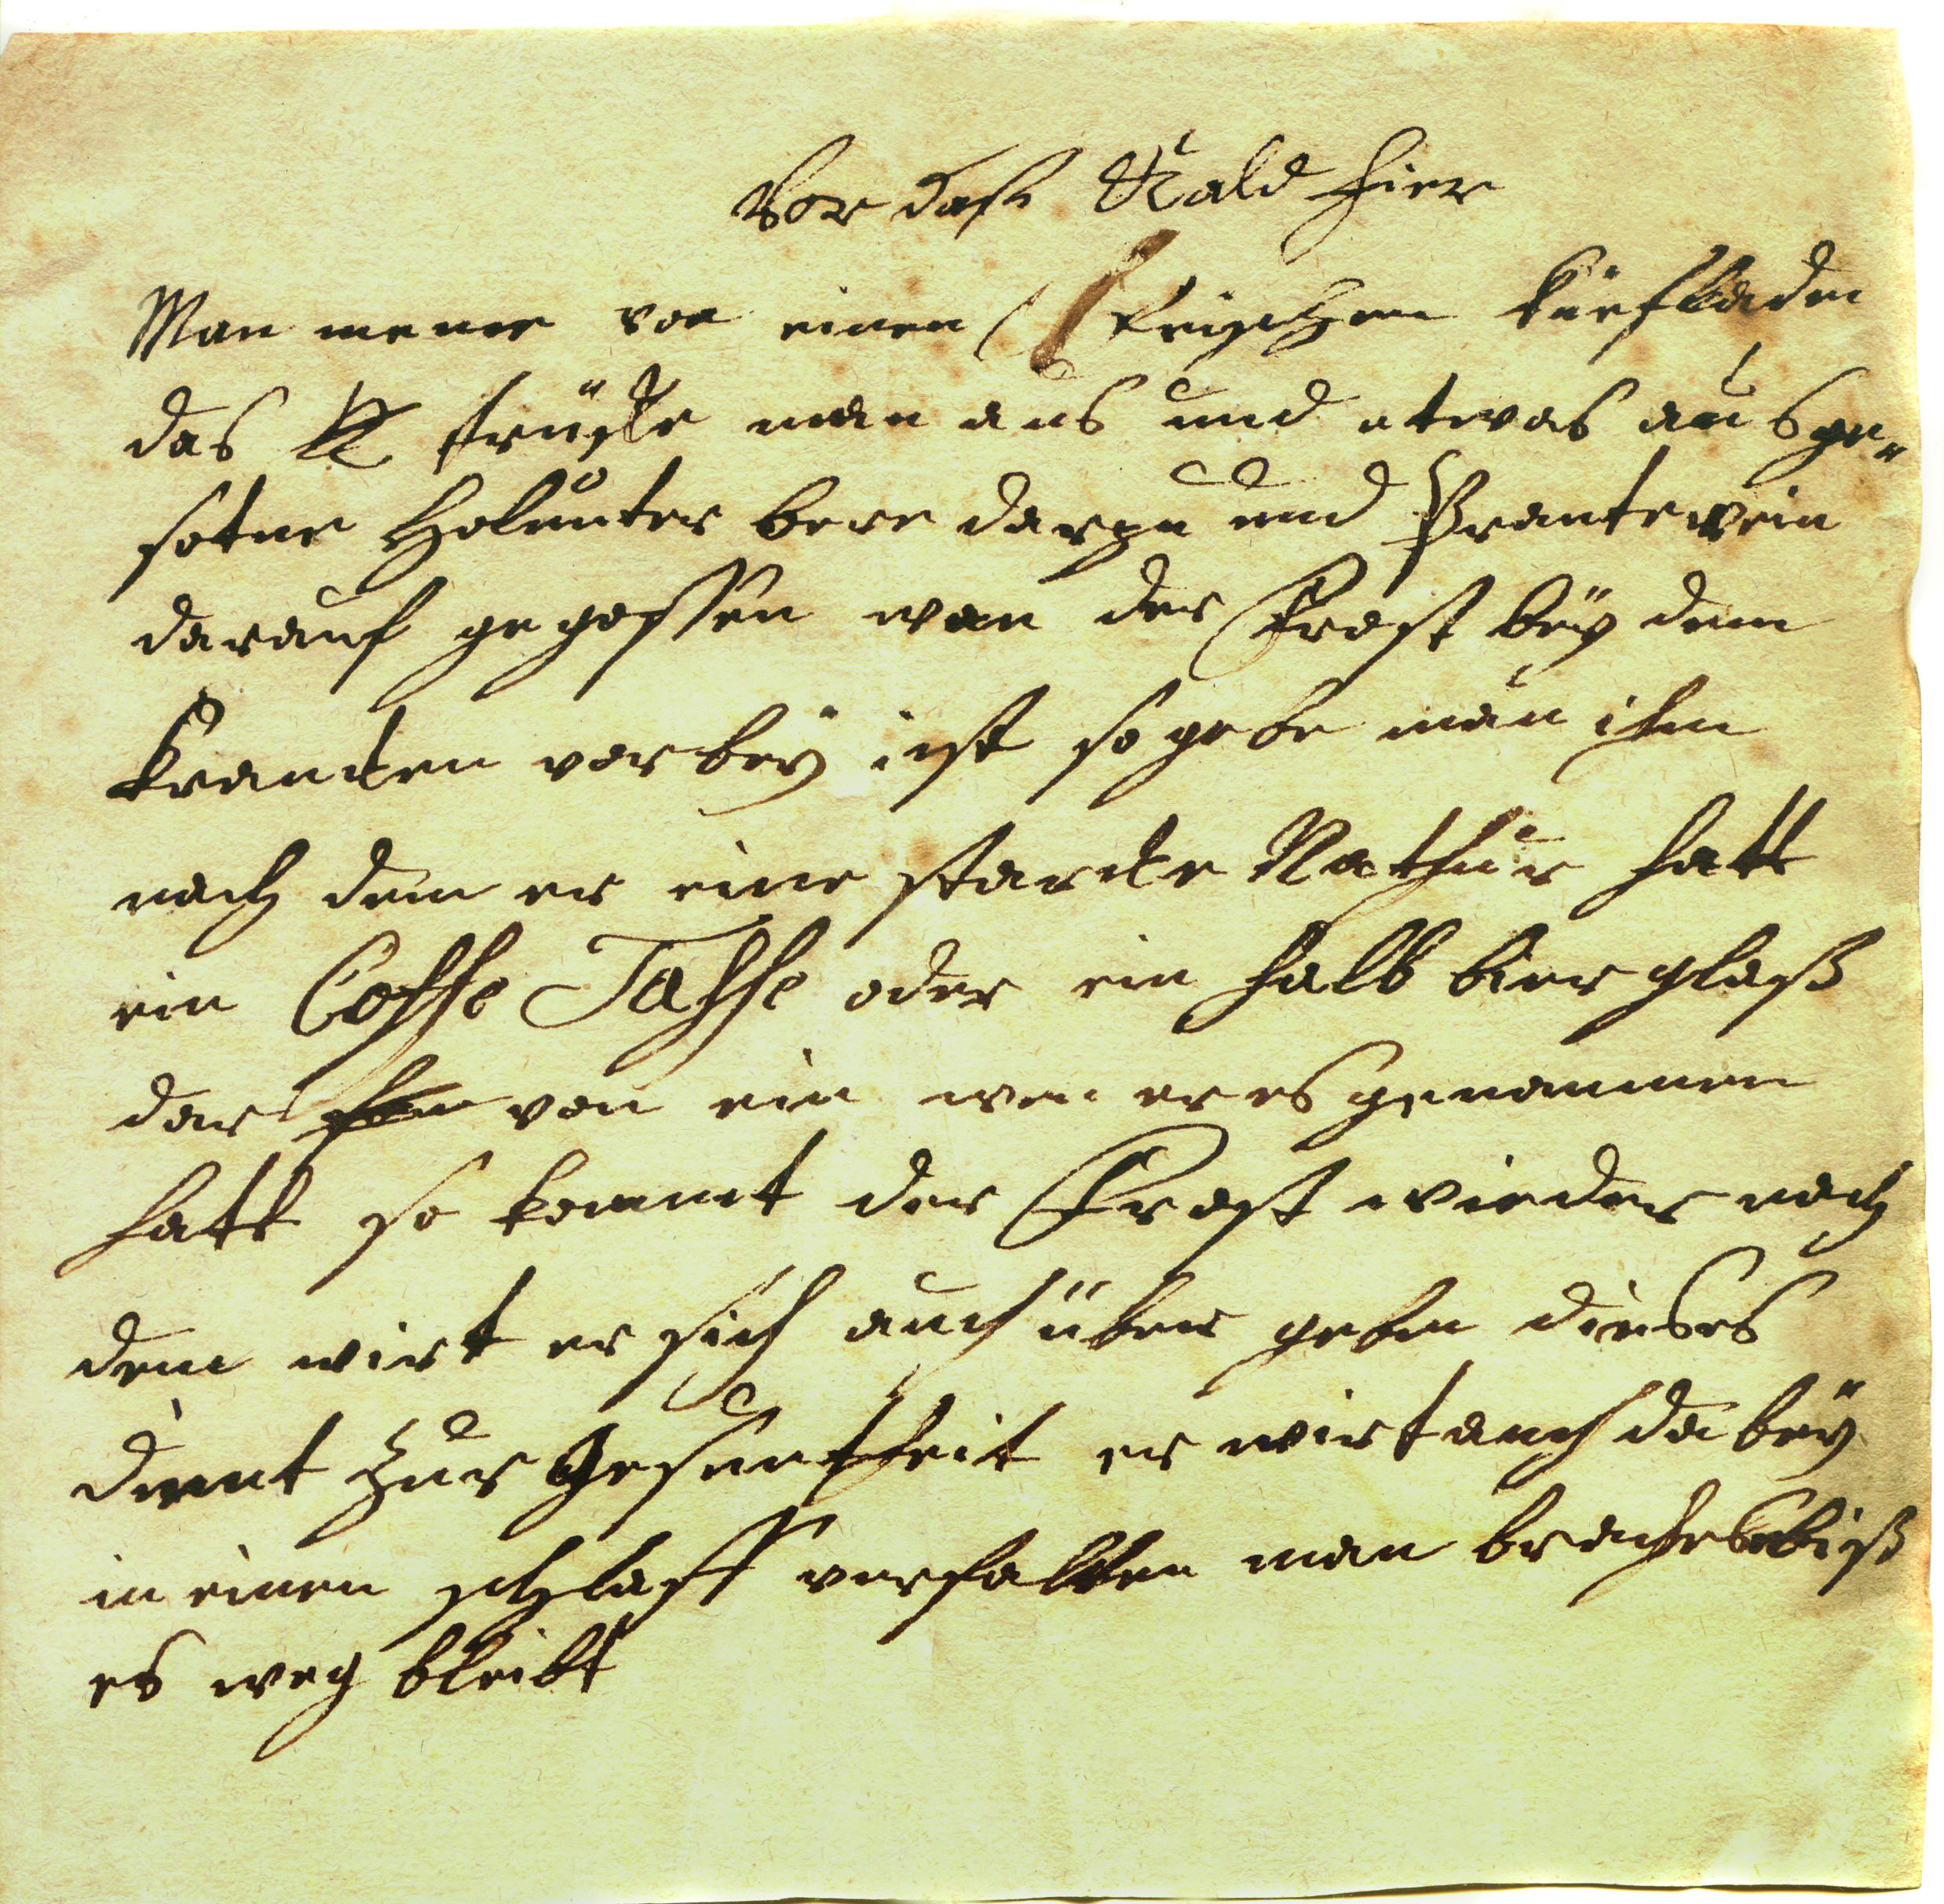 Vor daß Kald fier
Man neme von einen frischen kuefladen
das drücke man aus und etwas ausge=
sotne Holunter bere darzu und Brantewein
darauf gegossen wan der Frost bey dem
krancken vorbey ist so gebe man ihm
nach dem er eine starcke Nathur hatt
ein Coffe Tasse oder ein halb bier glaß
dar von ein wen er es genommen
hatt so kommt der Frost wieder nach
dem wirt er sich auch über geben dieses
dient zur Gesuntheit er wirt auch da bey
in einen schlaff verfallen man brauche biß
es weg bleibt